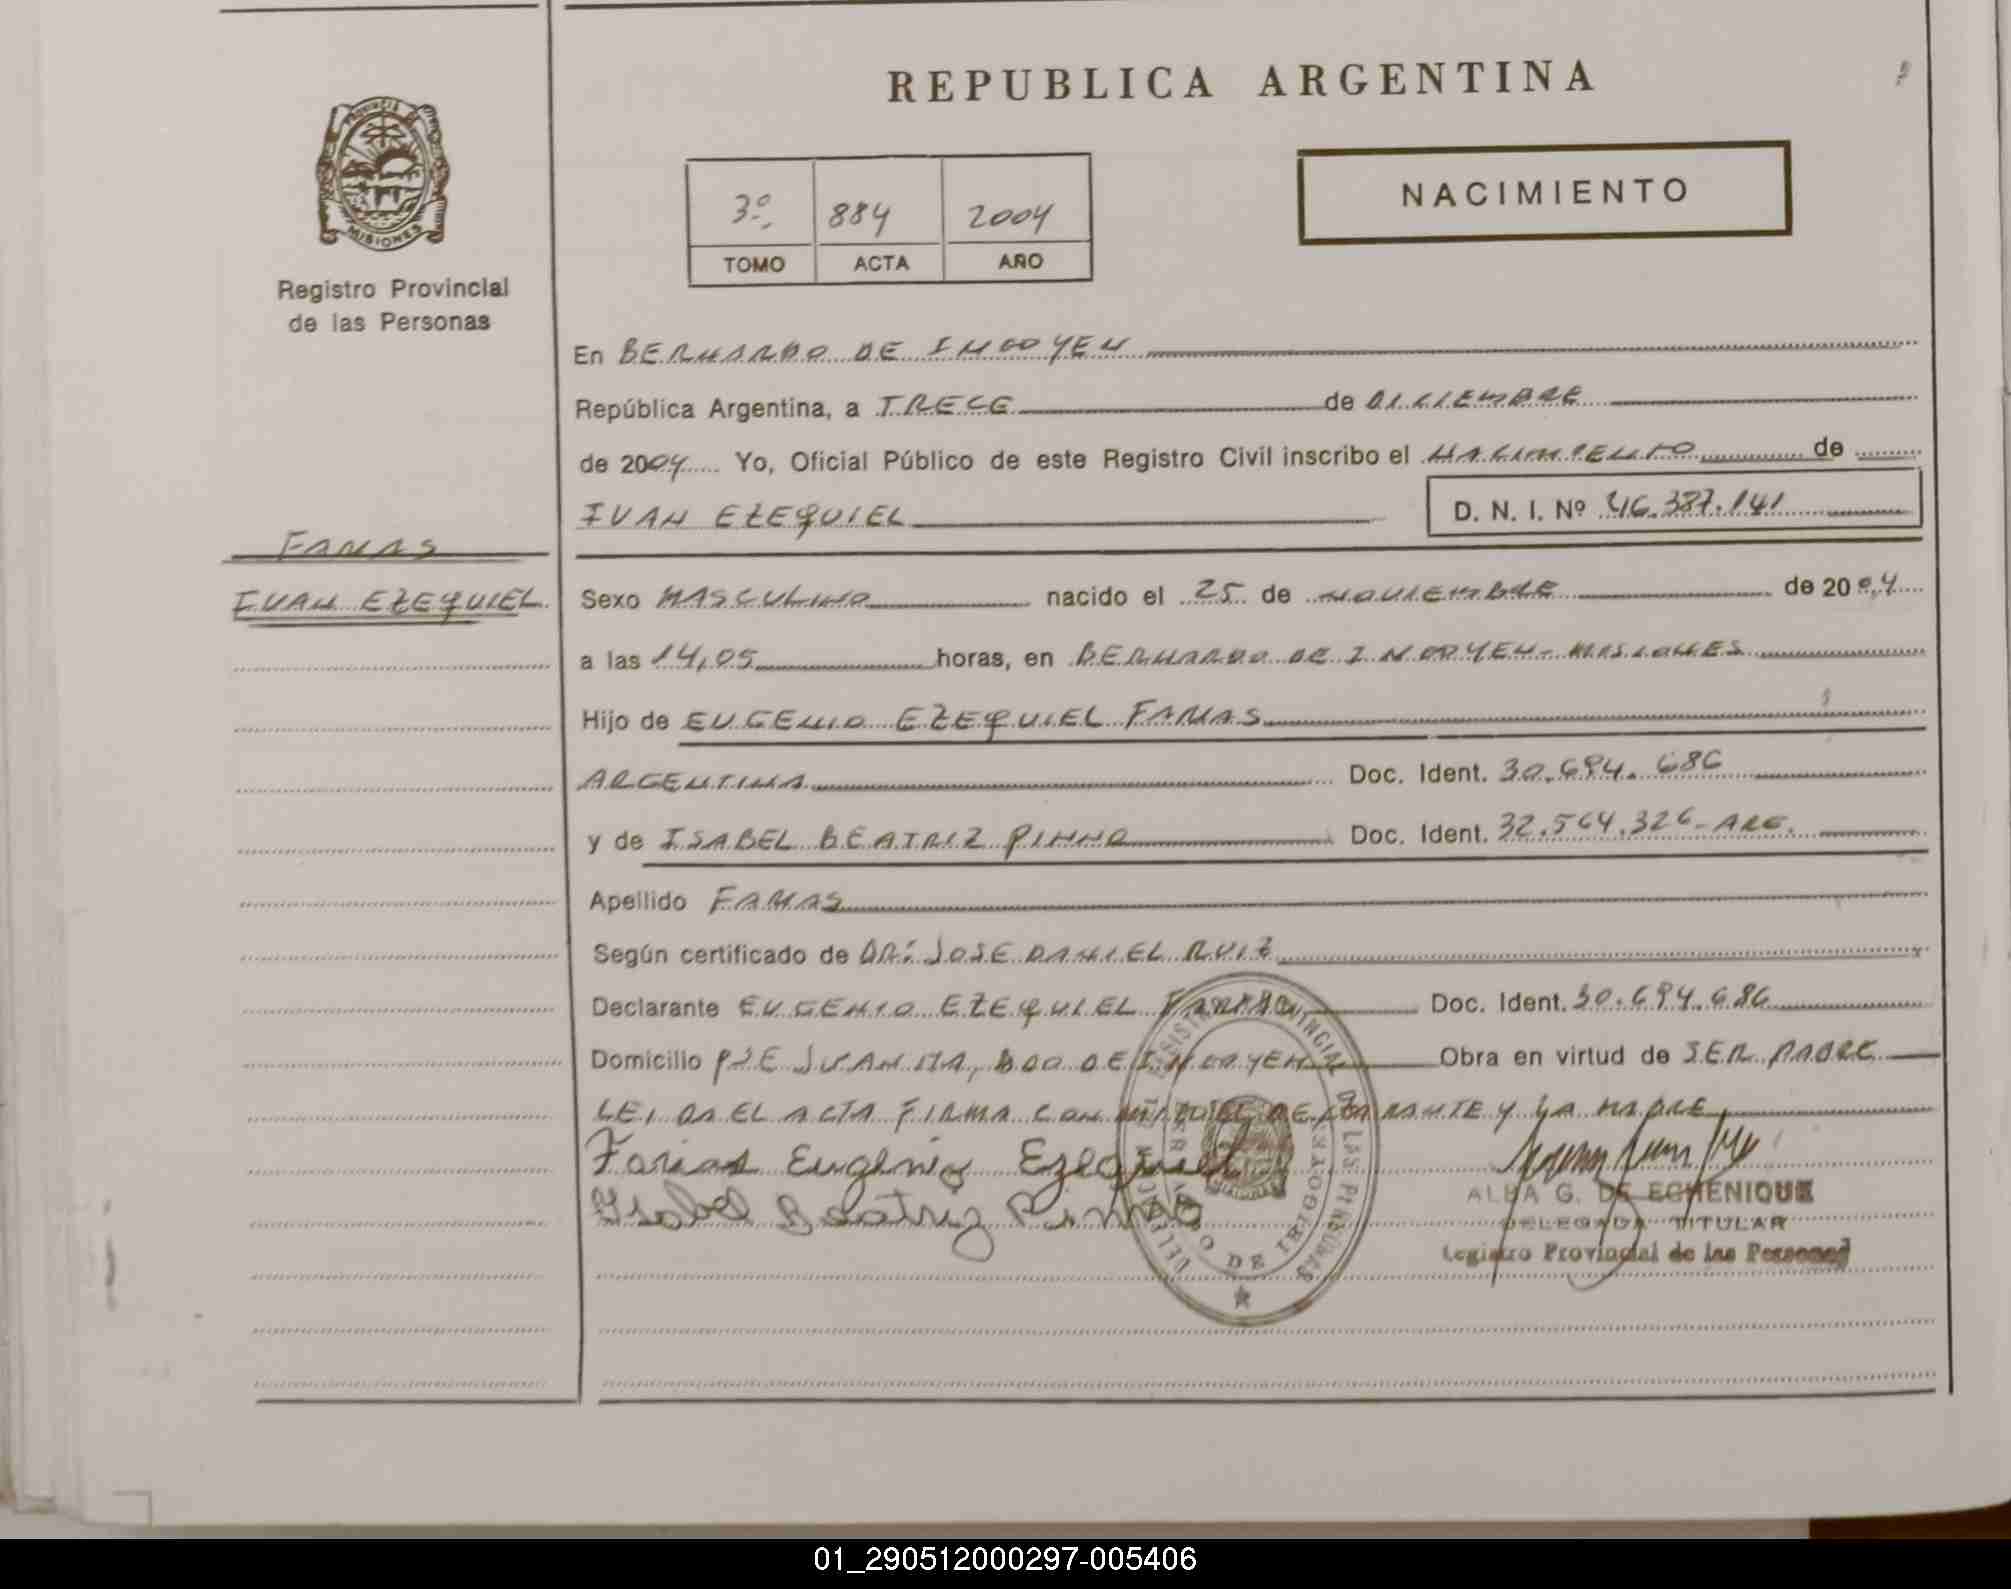 REPUBLICA ARGENTINA
PROVINCIA DE
MISIONES
Registro Provincial
de las Personas
NACIMIENTO
3º 884 2004
TOMO ACTA AÑO
En BERNARDO DE IRIGOYEN
República Argentina, a TRECE de DICIEMBRE
de 2004 Yo, Oficial Público de este Registro Civil inscribo el NACIMIENTO de
IVAN EZEQUIEL
D. N. I. Nº 46.387.141
FARIAS
IVAN EZEQUIEL
Sexo MASCULINO nacido el 25 de NOVIEMBRE de 2004
a las 14,05 horas, en BERNARDO DE IRIGOYEN - MISIONES
Hijo de EUGENIO EZEQUIEL FARIAS
ARGENTINA Doc. Ident. 30.694.686
y de ISABEL BEATRIZ PINNO Doc. Ident. 32.564.326 - ARG.
Apellido FARIAS
Según certificado de DR: JOSE DANIEL RUIZ
Declarante EUGENIO EZEQUIEL FARIAS Doc. Ident. 30.694.686
Domicilio PJE JUANITA, BDO DE IRIGOYEN Obra en virtud de SER PADRE
LEIDA EL ACTA FIRMA CONMIGO EL DECLARANTE Y LA MADRE
Farias Eugenio Ezequiel
Isabel Beatriz Pinno
REGISTRO PROVINCIAL DE LAS PERSONAS
BERNARDO DE IRIGOYEN
ALBA G. DE ECHENIQUE
DELEGADA TITULAR
Registro Provincial de las Personas
01_290512000297-005406